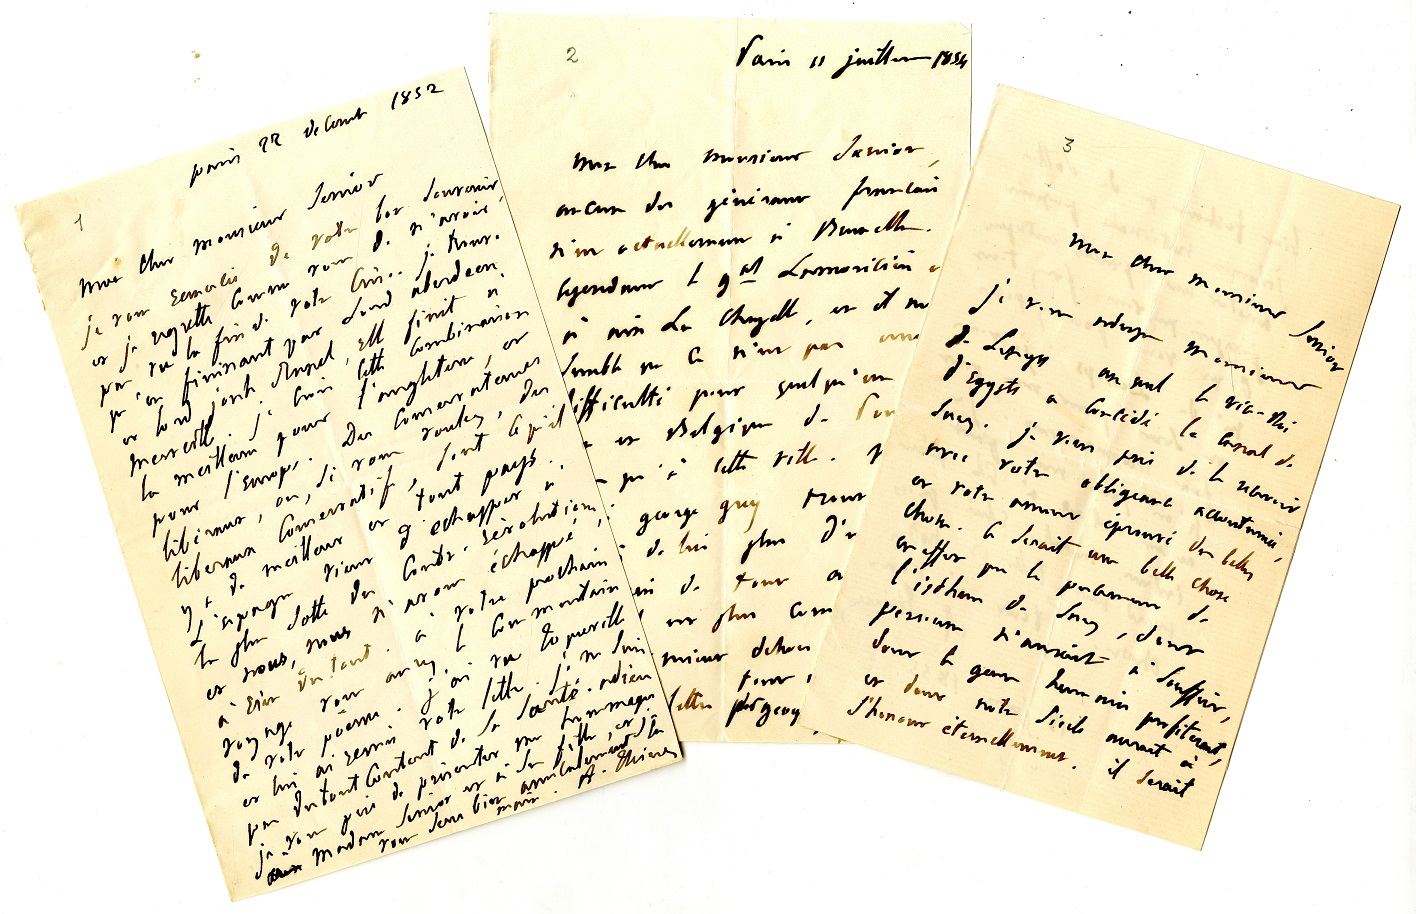 1
paris 22 decemb 1852
mon cher monsieur Senior
je vous remercie de votre bon souvenir
et je regrette comme vous de n'avoir
pas vu la fin de votre crise. je trouve
qu'en finissant par Lord aberdeen
et lord John Russel, elle finit à
merveille. je crois cette combinaison
la meilleure pour l'angleterre, et
pour l'Europe. Des conservateurs
libéraux, ou, si vous voulez, des
liberaux conservatifs, sont ce qu'il
y a de meilleur en tout pays.
L'espagne vient d'échapper à
la plus sotte des contre-révolutions,
et nous, nous n'avons échappé
à rien du tout. à votre prochain
voyage vous aurez le commentaire
de votre poème. j'ai vu Tocqueville
et lui ai remis votre lettre. je ne suis
pas du tout content de sa santé. adieu
je vous prie de présenter mes hommages
à Madame Senior et à sa fille, et
vous serre bien amicalement la
main. A. Thiers
2
Paris 11 juillet 1854
mon cher monsieur Senior,
aucun des généraux français
n'est actuellement à Bruxelles.
Cependant le gal Lamoricière
à aix La Chapelle, et il me
semble que ce n'est pas une
difficulté pour quelqu'un
en Belgique de
qu'à cette ville.
george grey
de lui plus
de tout
est plus
mieux dehors
pour
lettre
3
mon cher monsieur Senior
je vous adresse monsieur
de Lesseps au quel le vice-Roi
d'Egypte a concédé le canal de
Suez. je vous prie de le recevoir
avec votre obligeance accoutumée,
et votre amour éprouvé des belles
choses. ce serait une belle chose
en effet que le percement de
l'isthme de Suez, dont
personne n'aurait à souffrir,
dont le genre humain profiterait,
et dont notre siècle aurait à
s'honorer éternellement. il serait